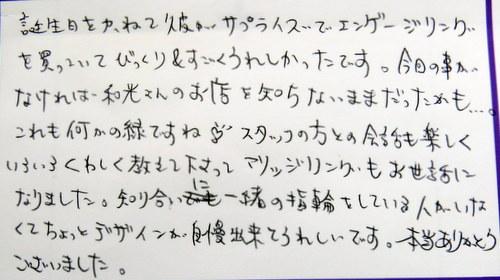 誕生日をかねて彼がサプライズでエンゲージリング
を買っていてびっくり&すごくうれしかったです。今回の事が
なければ和光さんのお店を知らないままだったかも…。
これも何かの縁ですね♡スタッフの方との会話も楽しく
いろいろくわしく教えて下さってマリッジリングもお世話に
なりました。知り合いに一緒の指輪をしている人がいな
くてちょっとデザインが自慢出来てうれしいです。本当ありがとう
ございました。